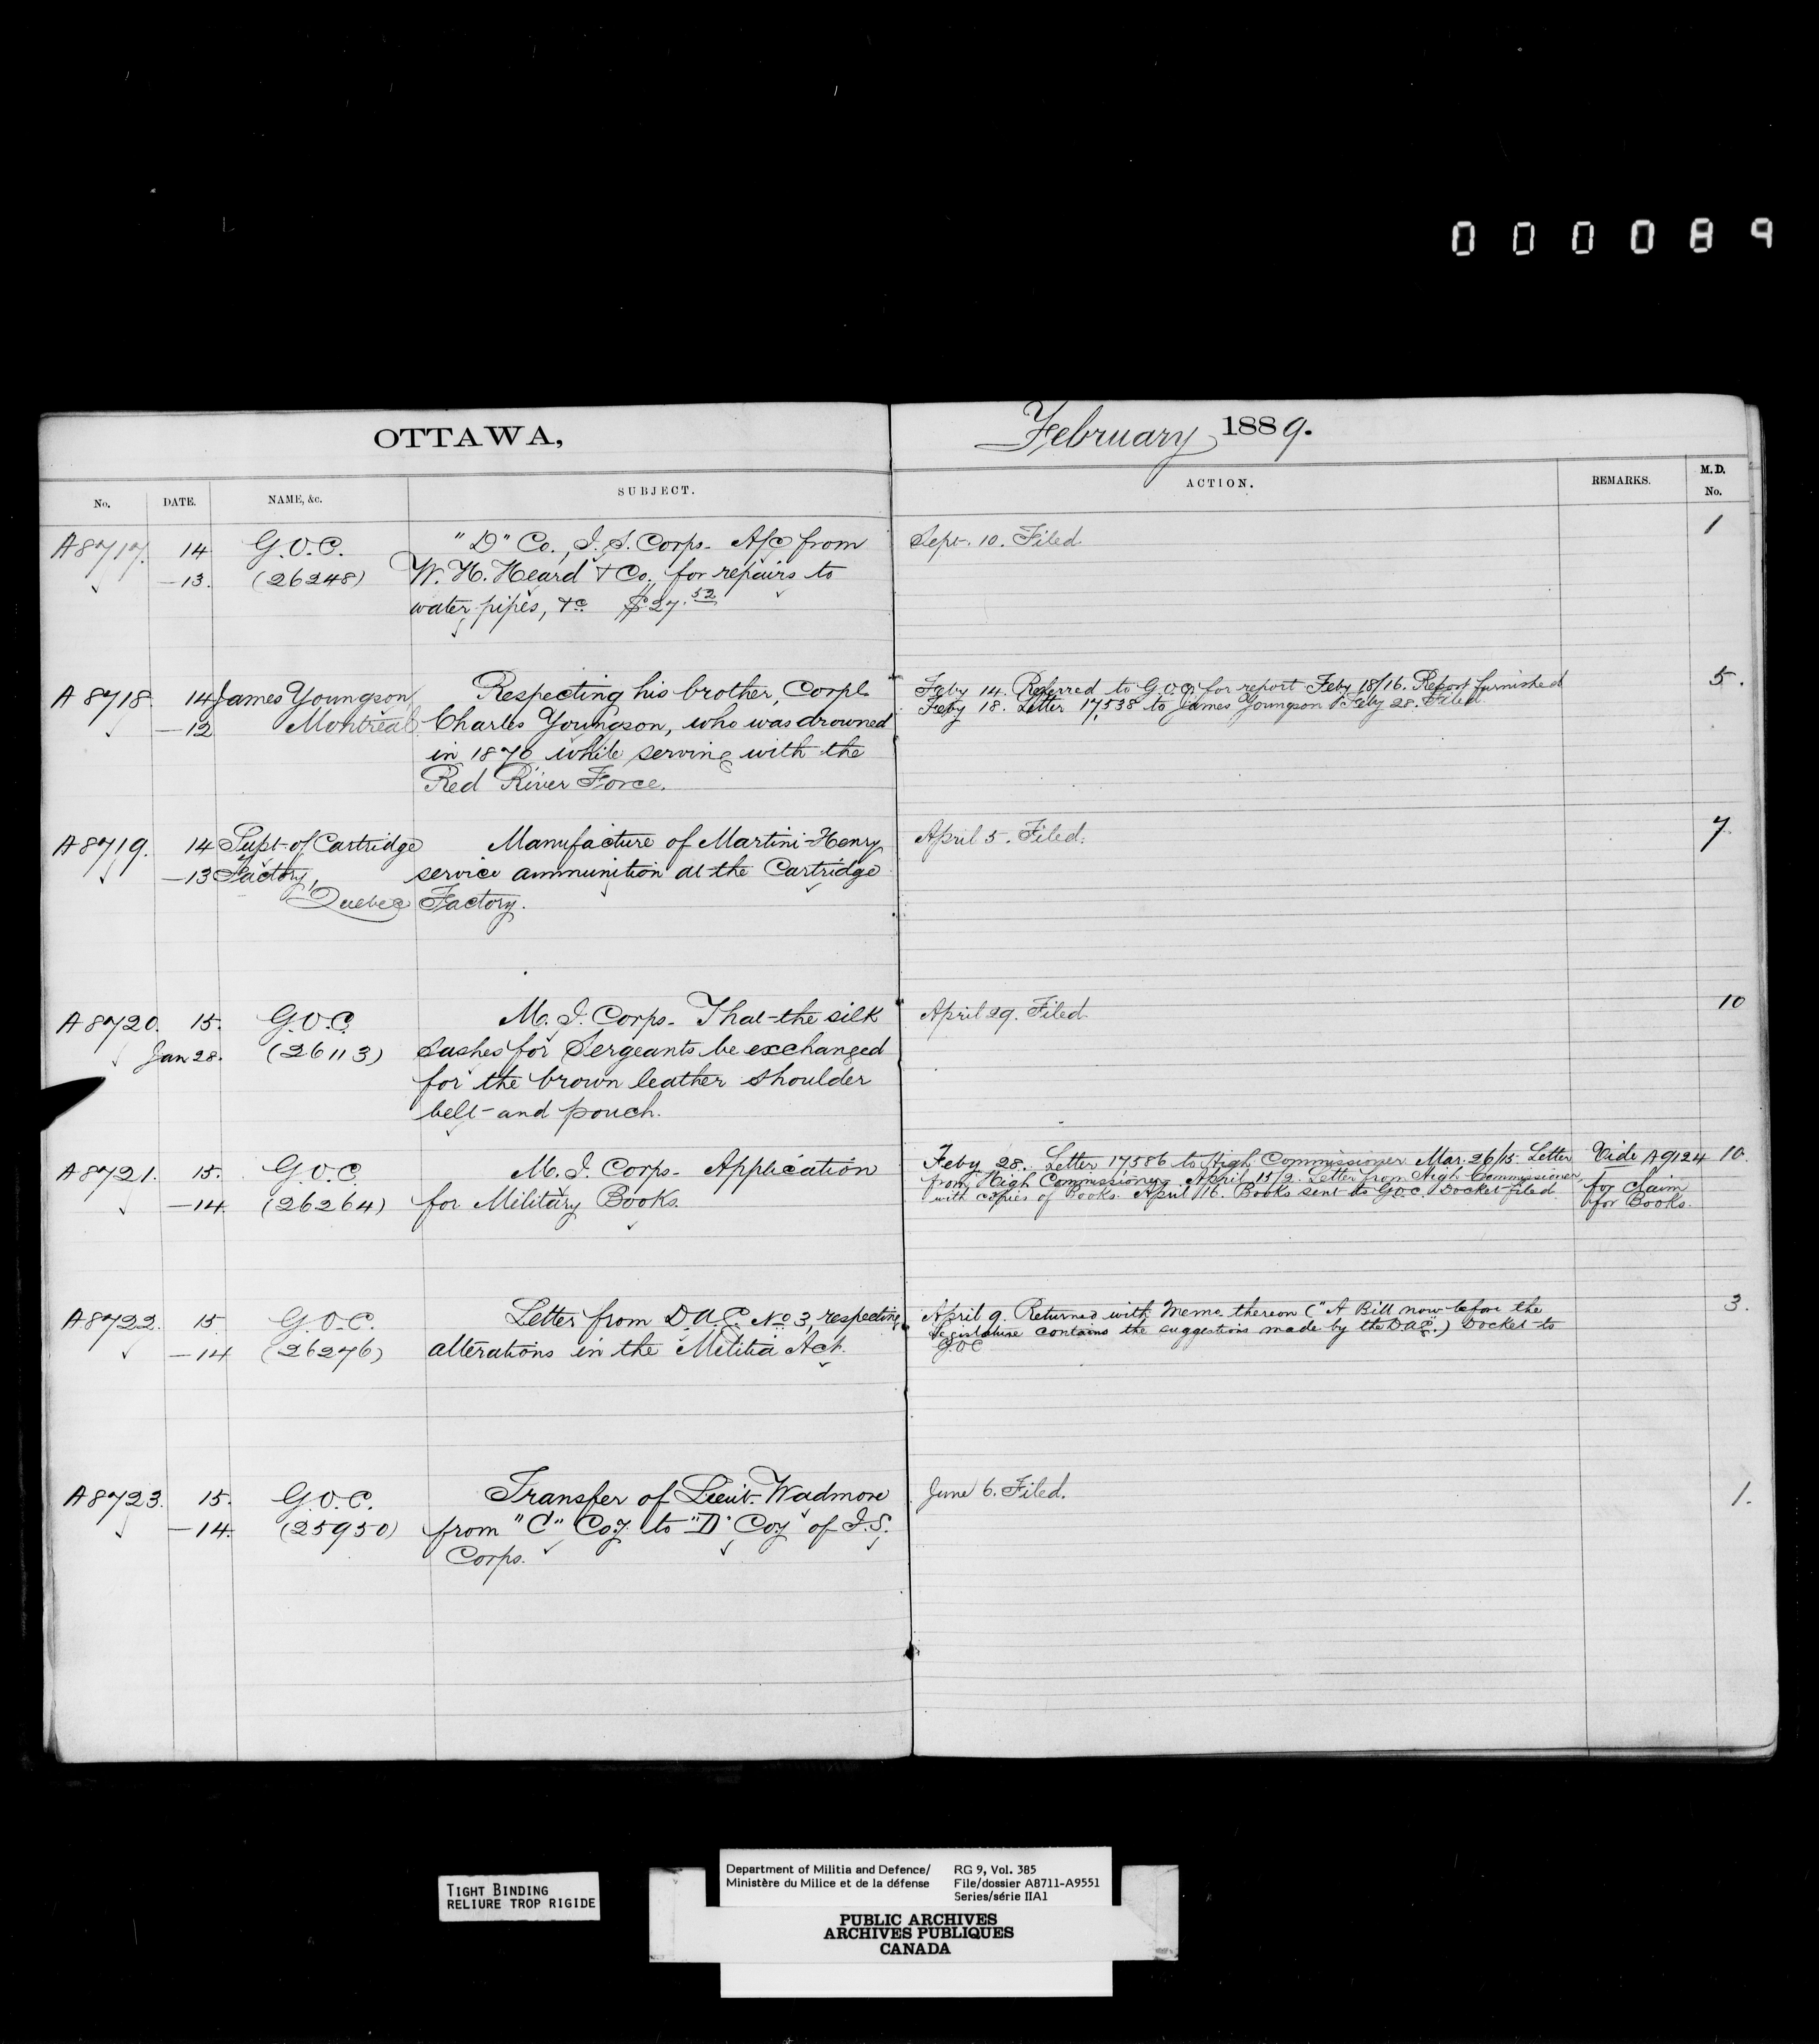 000089
OTTAWA,
February 1889.
No.
DATE.
NAME, &c.
SUBJECT.
ACTION.
REMARKS.
M.D.
No.
A8717. 14 G.O.C. "D" Co., I.S. Corps - A/C from Sept. 10. Filed. 1
—13. (26248) W. H. Heard & Co. for repairs to
water pipes, &c $27.52
A8718. 14 James Youngson, Respecting his brother, Corpl. Feby 14. Referred to G.O.C. for report Feby 18/16. Report furnished 5.
—12 Montreal Charles Youngson, who was drowned Feby 18. Letter 17538 to James Youngson Feby 28. Filed.
in 1870 while serving with the
Red River Force.
A8719. 14 Supt. of Cartridge Manufacture of Martini-Henry April 5. Filed. 7.
—13 Factory, service ammunition at the Cartridge
Quebec Factory.
A8720. 15. G.O.C. M.I. Corps - That the silk April 29. Filed. 10
Jan 28. (26113) sashes for Sergeants be exchanged
for the brown leather shoulder
belt and pouch.
A8721. 15. G.O.C. M.I. Corps - Application Feby 28. Letter 17586 to High Commissioner Mar. 26/15. Letter Vide A9124 10.
—14. (26264) for Military Books. from High Commissioner. April 15/2. Letter from High Commissioner for claim
with copies of Books. April 16. Books sent to G.O.C. Docket filed. for Books.
A8722. 15 G.O.C. Letter from D.A.G. No 3, respecting April 9. Returned with Memo thereon ("A Bill now before the 3.
—14 (26276) alterations in the Militia Act. legislature contains the suggestions made by the DAG".) Docket to
G.O.C
A8723. 15. G.O.C. Transfer of Lieut. Wadmore June 6. Filed. 1.
—14. (25950) from "C" Coy. to "D" Coy of I.S.
Corps.
TIGHT BINDING
RELIURE TROP RIGIDE
Department of Militia and Defence/ RG 9, Vol. 385
Ministère du Milice et de la défense File/dossier A8711-A9551
Series/série IIA1
PUBLIC ARCHIVES
ARCHIVES PUBLIQUES
CANADA